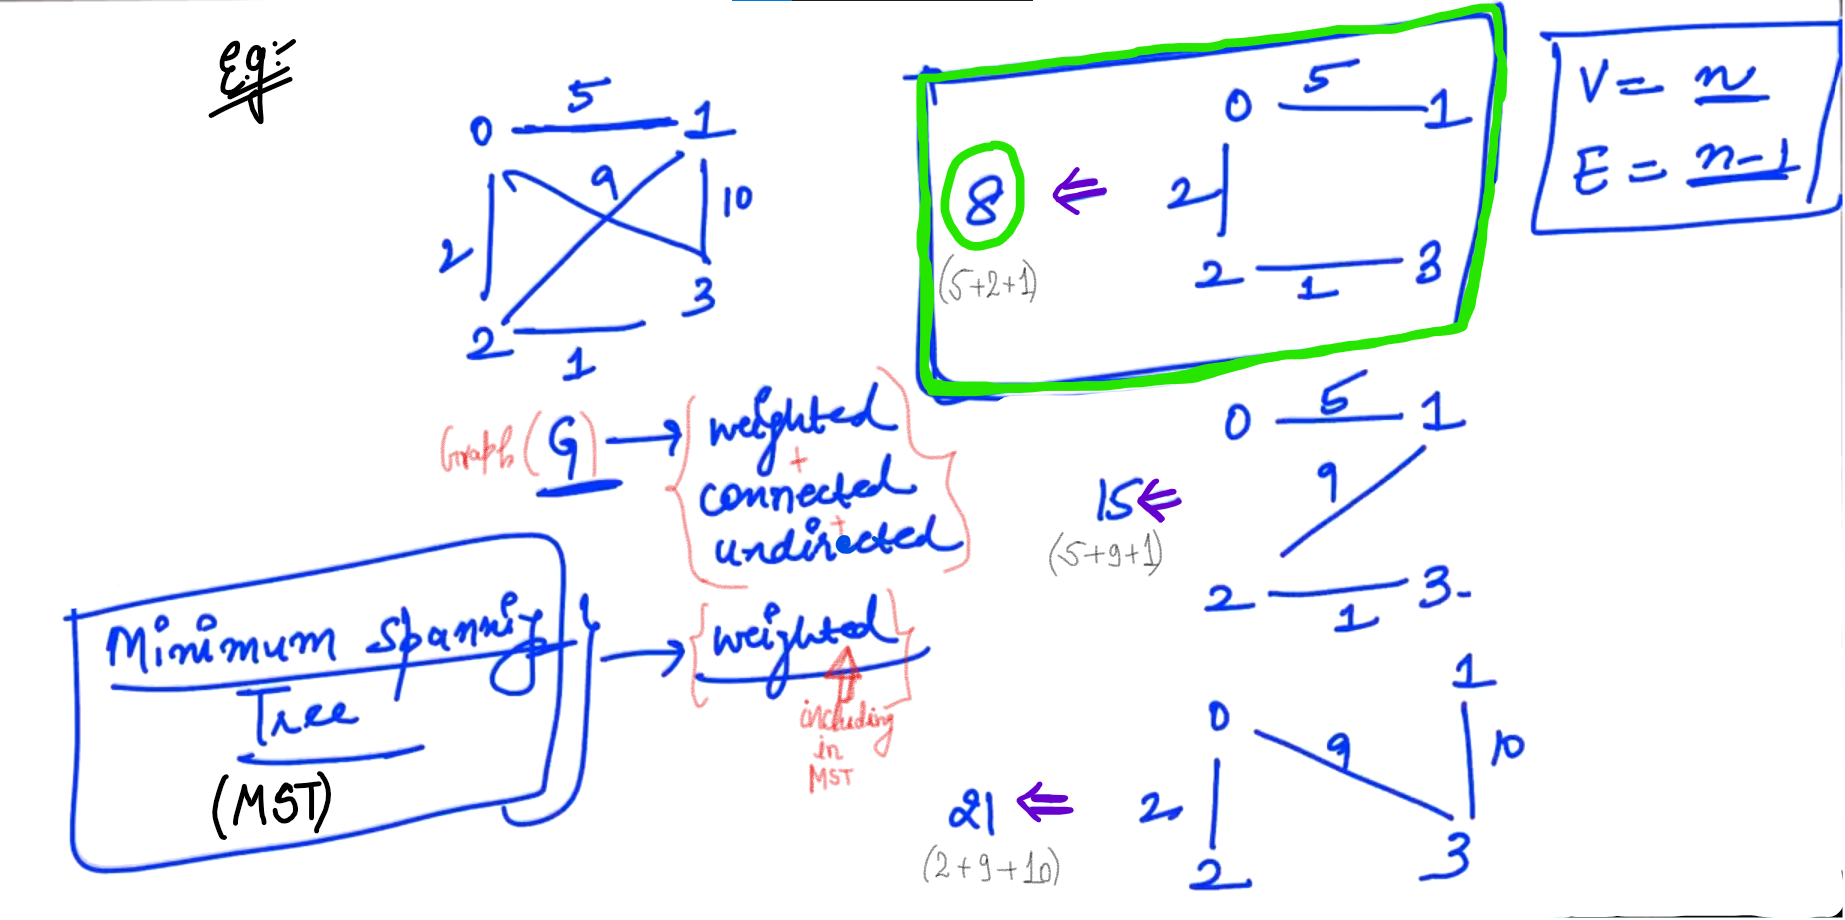 E.g:-
0 5 1
9
2 10
2 1 3
Graph (G) → { weighted
+
connected
+
undirected }
Minimum Spanning
Tree
(MST)
→ { weighted }
including
in
MST
0 5 1
8 ⇐ 2
(5+2+1)
2 1 3
V = n
E = n-1
0 5 1
15 ⇐ 9
(5+9+1)
2 1 3
1
0 9 10
21 ⇐ 2
(2+9+10)
2 3